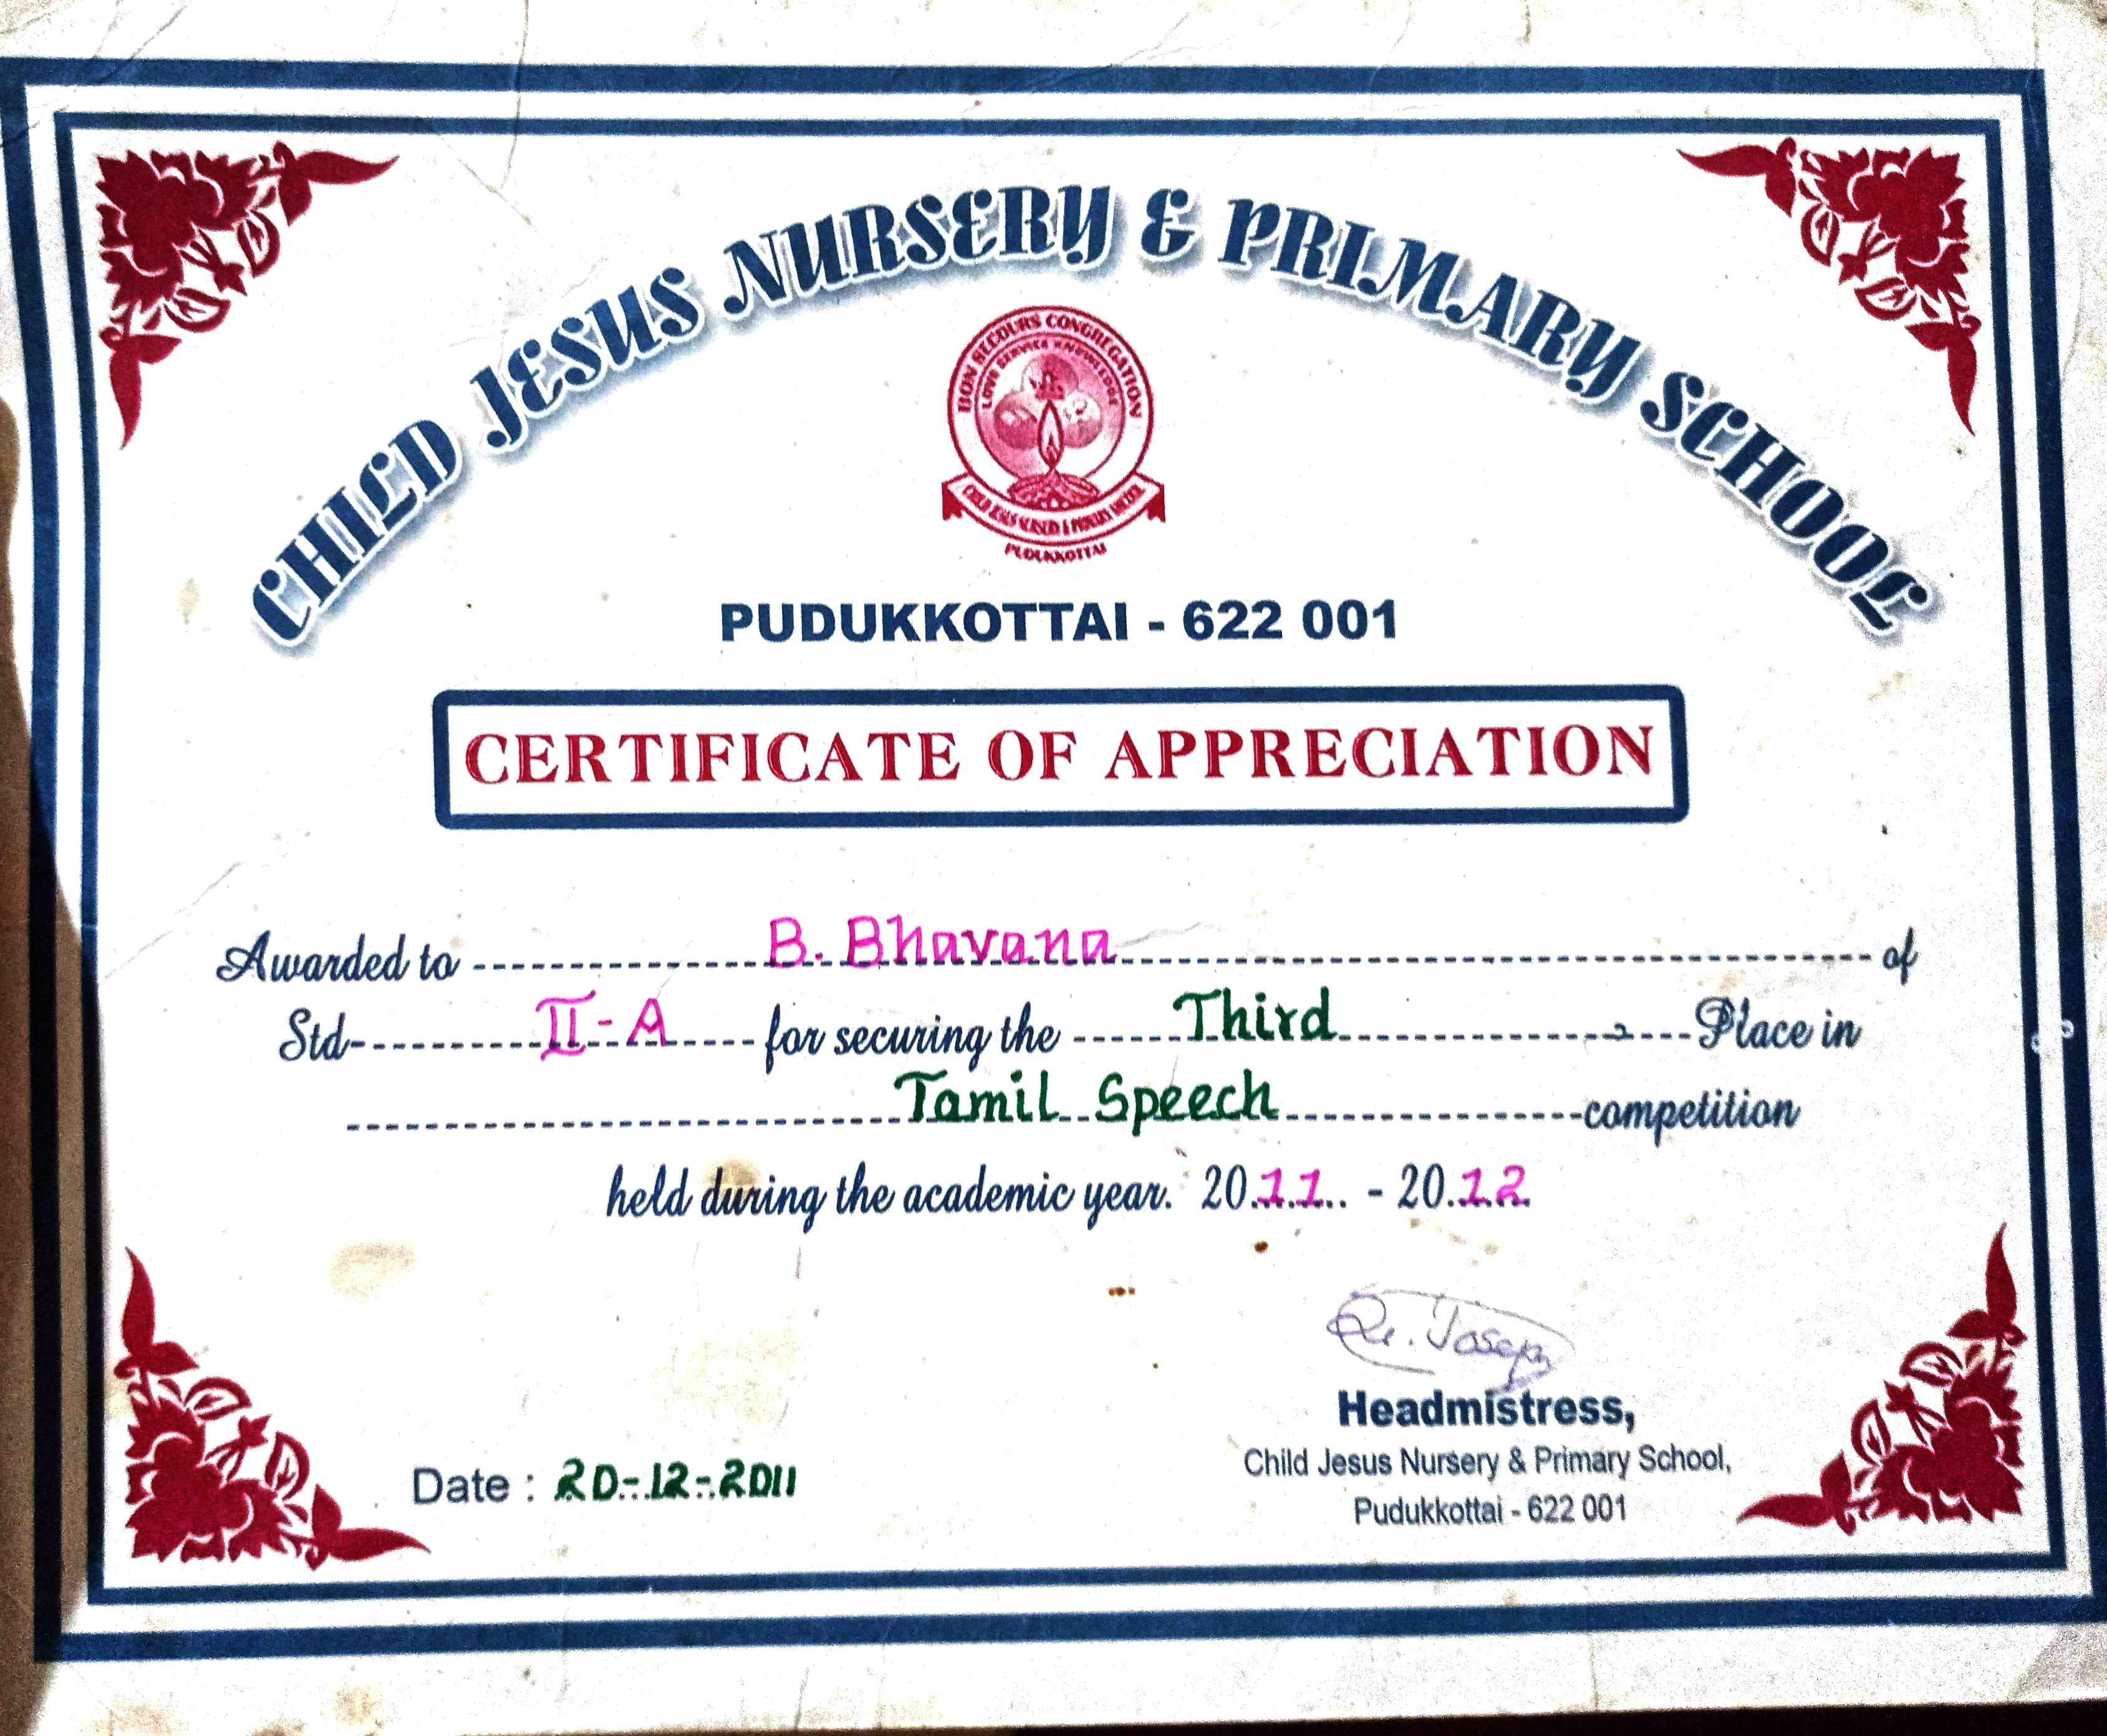 CHILD JESUS NURSERY & PRIMARY SCHOOL
BON SECOURS CONGREGATION
LOVE SERVICE KNOWLEDGE
CHILD JESUS NURSERY & PRIMARY SCHOOL
PUDUKKOTTAI
PUDUKKOTTAI - 622 001
CERTIFICATE OF APPRECIATION
Awarded to B. Bhavana of
Std- II-A for securing the Third Place in
Tamil Speech competition
held during the academic year. 2011 - 2012
Joseph
Headmistress,
Child Jesus Nursery & Primary School,
Pudukkottai - 622 001
Date : 20-12-2011